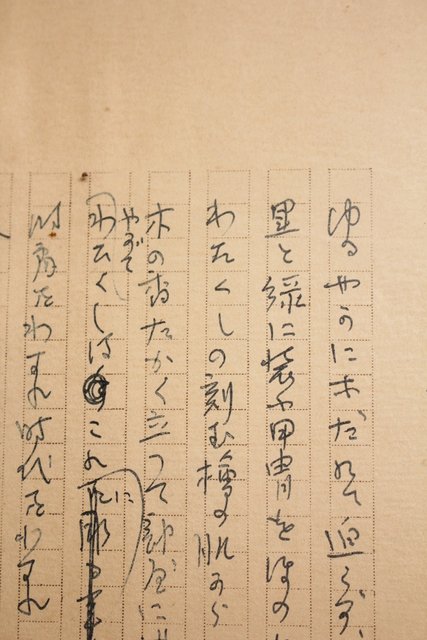 ゆるやかに木だれて迫らず、
黒と緑に装ふ甲冑をほの
わたくしの刻む檜の肌から
木の香たかく立つて部屋に
やがて
わたくしはこれに彫る
時間をわすれ時代をわすれ